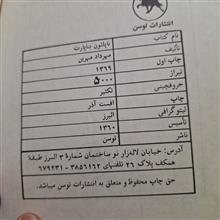 انتشارات توسن
نام کتاب ناپلئون بناپارت
تألیف مهرداد مهرین
چاپ اول ۱۳۶۹
تیراژ ۵۰۰۰
حروفچینی تکثیر
چاپ افست آذر
لیتوگرافی البرز
تأسیس ۱۳۶۰
ناشر توسن
آدرس: خیابان لاله‌زار نو ساختمان شمارهٔ ۳ البرز طبقهٔ
همکف پلاک ۲۶ تلفنهای ۳۸۵۱۶۲ - ۶۷۹۲۳۱
حق چاپ محفوظ و متعلق به انتشارات توسن میباشد.